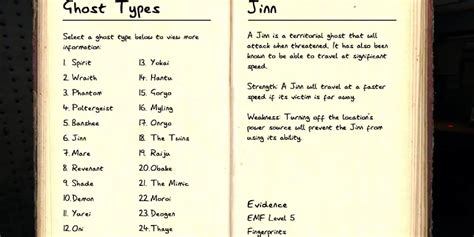 Ghost Types
Select a ghost type below to view more
information:
1. Spirit
2. Wraith
3. Phantom
4. Poltergeist
5. Banshee
6. Jinn
7. Mare
8. Revenant
9. Shade
10. Demon
11. Yurei
12. Oni
13. Yokai
14. Hantu
15. Goryo
16. Myling
17. Onryo
18. The Twins
19. Raiju
20. Obake
21. The Mimic
22. Moroi
23. Deogen
24. Thaye
Jinn
A Jinn is a territorial ghost that will
attack when threatened. It has also
been known to be able to travel at significant
speed.
Strength: A Jinn will travel at a faster
speed if its victim is far away.
Weakness: Turning off the location's
power source will prevent the Jinn from
using its ability.
Evidence
EMF Level 5
Fingerprints